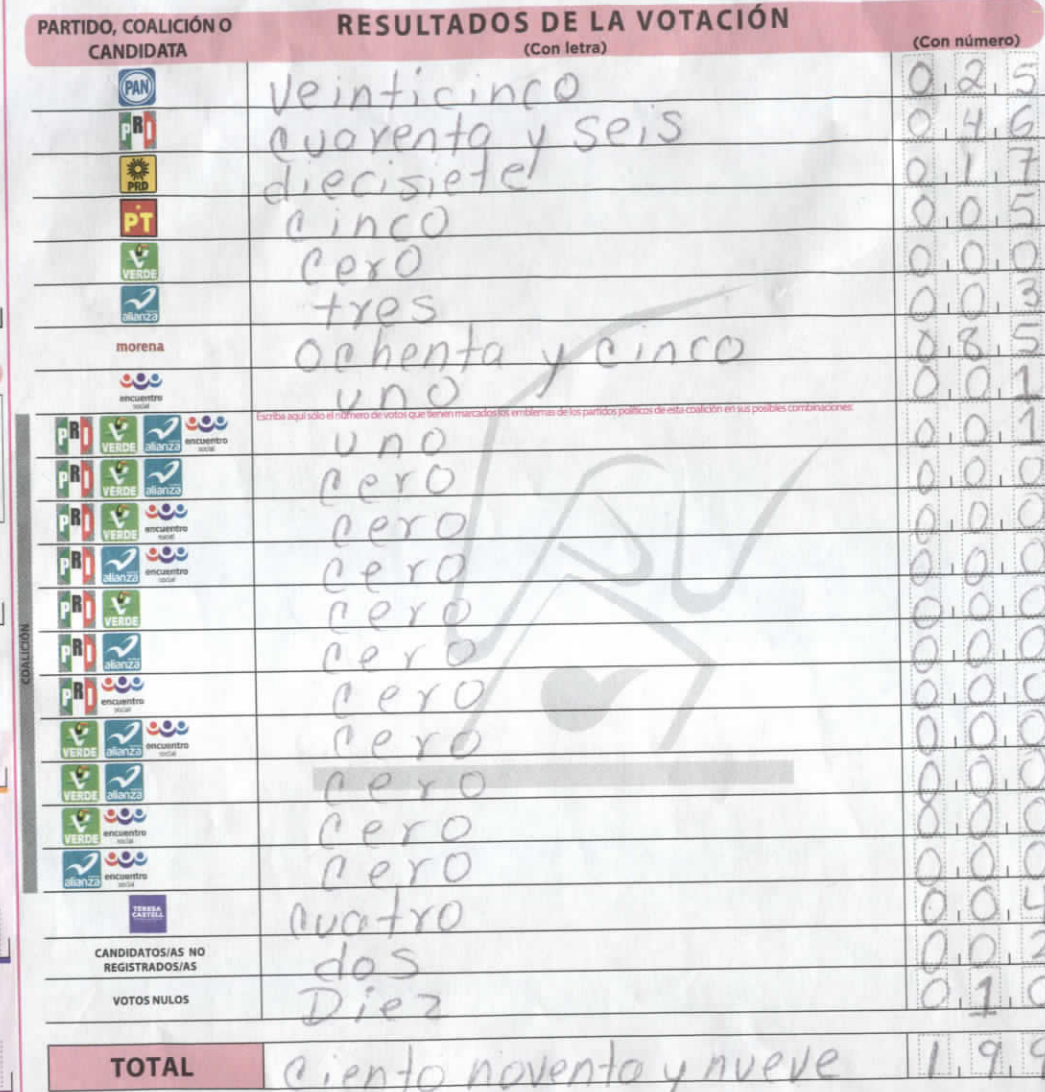 PARTIDO, COALICIÓN O CANDIDATA RESULTADOS DE LA VOTACIÓN (Con letra) (Con número)
PAN veinticinco 025
PRI cuarenta y seis 046
PRD diecisiete 017
PT cinco 005
VERDE cero 000
alianza tres 003
morena ochenta y cinco 085
encuentro social uno 001
Escriba aquí sólo el número de votos que tienen marcados los emblemas de los partidos políticos de esta coalición en sus posibles combinaciones:
COALICIÓN
PRI VERDE alianza encuentro social uno 001
PRI VERDE alianza cero 000
PRI VERDE encuentro social cero 000
PRI alianza encuentro social cero 000
PRI VERDE cero 000
PRI alianza cero 000
PRI encuentro social cero 000
VERDE alianza encuentro social cero 000
VERDE alianza cero 000
VERDE encuentro social cero 000
alianza encuentro social cero 000
TERESA CASTELL cuatro 004
CANDIDATOS/AS NO REGISTRADOS/AS dos 002
VOTOS NULOS Diez 010
TOTAL ciento noventa y nueve 199